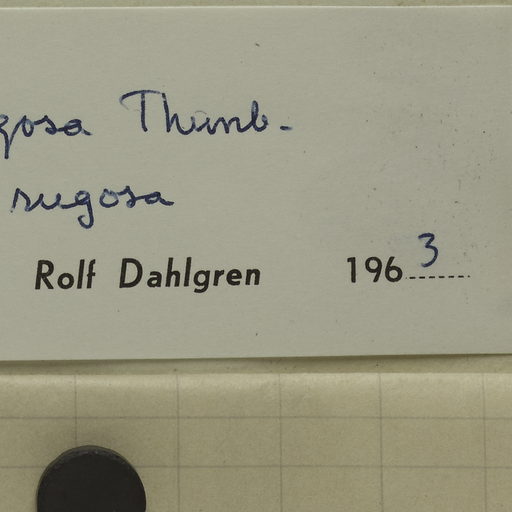 gosa Thunb.
rugosa
Rolf Dahlgren 1963